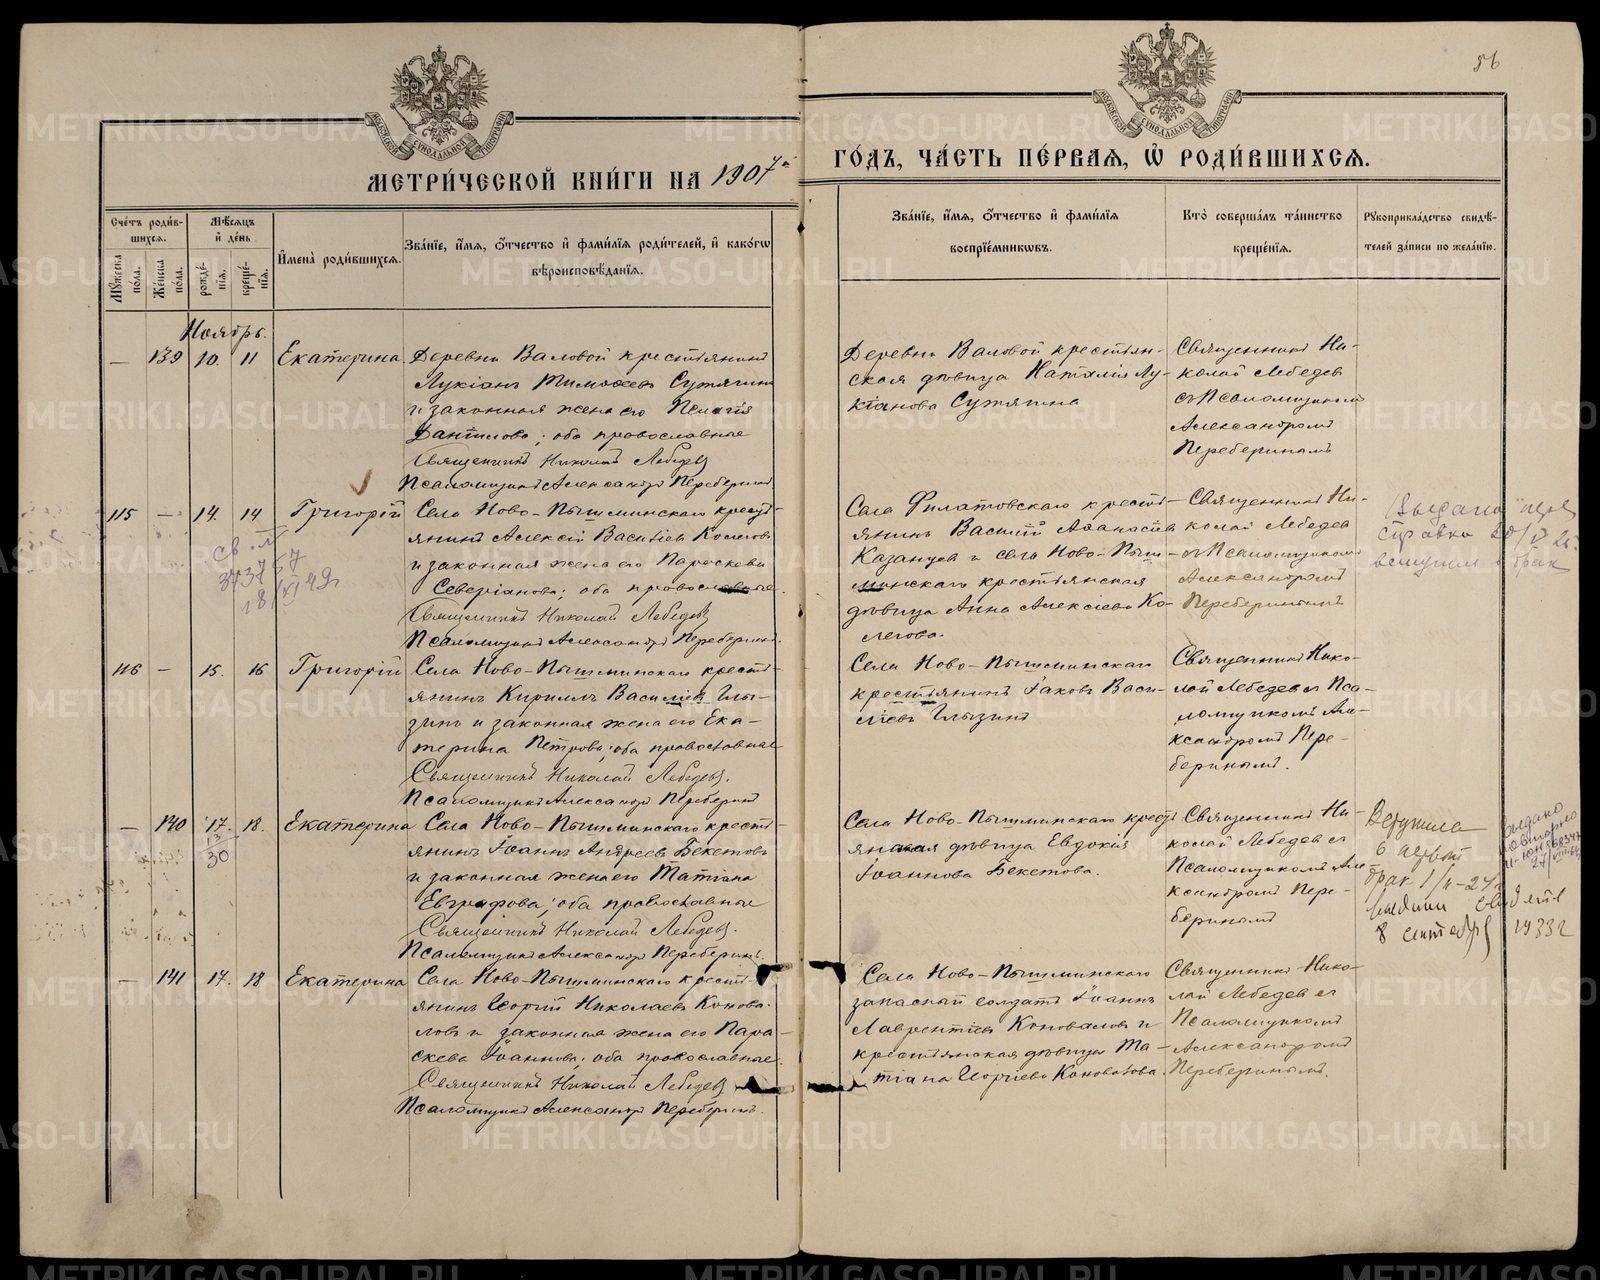 56
МОСКОВСКОЙ СѴНОДАЛЬНОЙ ТИПОГРАФІИ
МОСКОВСКОЙ СѴНОДАЛЬНОЙ ТИПОГРАФІИ
МЕТРИ́ЧЕСКОЙ КНИ́ГИ НА 1907й
ГО́ДЪ, ЧА́СТЬ ПЕ́РВАЯ, Ѡ҆ РОДИ́ВШИХСЯ.
Сче́тъ роди́в-
шихся.
Мѣ́сяцъ
и҆ де́нь
Мꙋ́жеска по́ла.
Же́нска по́ла.
рожде́нїя.
креще́нїя.
И҆мена̀ роди́вшихся.
Зва́нїе, и҆́мя, ѻ҆́тчество и҆ фамѝлїя роди́телей, и҆ како́гѡ
вѣроисповѣ́данїя.
Зва́нїе, и҆́мя, ѻ҆́тчество и҆ фамѝлїя
воспрїе́мникѡвъ.
Кто̀ соверша́лъ та́инство
креще́нїя.
Рꙋкоприкла́дство свидѣ́-
телей за́писи по жела́нїю.
Ноябрь.
— 139 10. 11 Екатерина.
Деревни Валовой крестьянинъ
Лукіанъ Тимоѳеевъ Сутягинъ
и законная жена его Пелагія
Даніилова; оба православные
Священникъ Николай Лебедевъ
Псаломщикъ Александръ Переберинъ
Деревни Валовой крестьян-
ская дѣвица Наталія Лу-
кіанова Сутягина
Священникъ Ни-
колай Лебедев
съ Псаломщикомъ
Александромъ
Переберинымъ
115 — 14. 14 Григорій
св. л
18/XI 49г
Села Ново-Пышминскаго крестья-
янинъ Алексій Васильевъ Колеговъ
и законная жена его Параскева
Северіанова; оба православные.
Священникъ Николай Лебедевъ
Псаломщикъ Александръ Переберинъ.
Села Филатовскаго кресть-
янинъ Василій Аѳанасіевъ
Казанцев и села Ново-Пыш-
минскаго крестьянская
дѣвица Анна Алексіева Ко-
легова.
Священникъ Ни-
колай Лебедев
съ Псаломщикомъ
Александромъ
Переберинымъ
Выдана
справка
брак
116 — 15. 16 Григорій
Села Ново-Пышминскаго кресть-
янинъ Кириллъ Василіевъ Глы-
зинъ и законная жена его Ека-
терина Петрова; оба православные
Священникъ Николай Лебедевъ.
Псаломщикъ Александръ Переберинъ
Села Ново-Пышминскаго
крестьянинъ Іаковъ Васи-
ліевъ Глызинъ
Священникъ Нико-
лай Лебедев съ Пса-
ломщикомъ Але-
ксандромъ Пере-
беринымъ.
— 140 17. 18. Екатерина
30
Села Ново-Пышминскаго кресть-
янинъ Іоаннъ Андреевъ Бекетовъ
и законная жена его Татіана
Евграфова; оба православные
Священникъ Николай Лебедевъ.
Псаломщикъ Александръ Переберинъ.
Села Ново-Пышминскаго кресть-
янская дѣвица Евдокія
Іоаннова Бекетова.
Священникъ Ни-
колай Лебедев съ
Псаломщикомъ Але-
ксандромъ Пере-
беринымъ
Вступила
в первый
брак
8 сентября 1933г
Выдано
повторно
— 141 17. 18 Екатерина
Села Ново-Пышминскаго кресть-
янинъ Георгій Николаевъ Конова-
ловъ и законная жена его Пара-
скева Іоаннова; оба православные.
Священникъ Николай Лебедевъ
Псаломщикъ Александръ Переберинъ.
Села Ново-Пышминскаго
запасный солдатъ Іоаннъ
Лаврентіевъ Коноваловъ и
крестьянская дѣвица Та-
тіана Георгіева Коновалова.
Священникъ Нико-
лай Лебедев съ
Псаломщикомъ
Александромъ
Переберинымъ.
METRIKI.GASO-URAL.RU